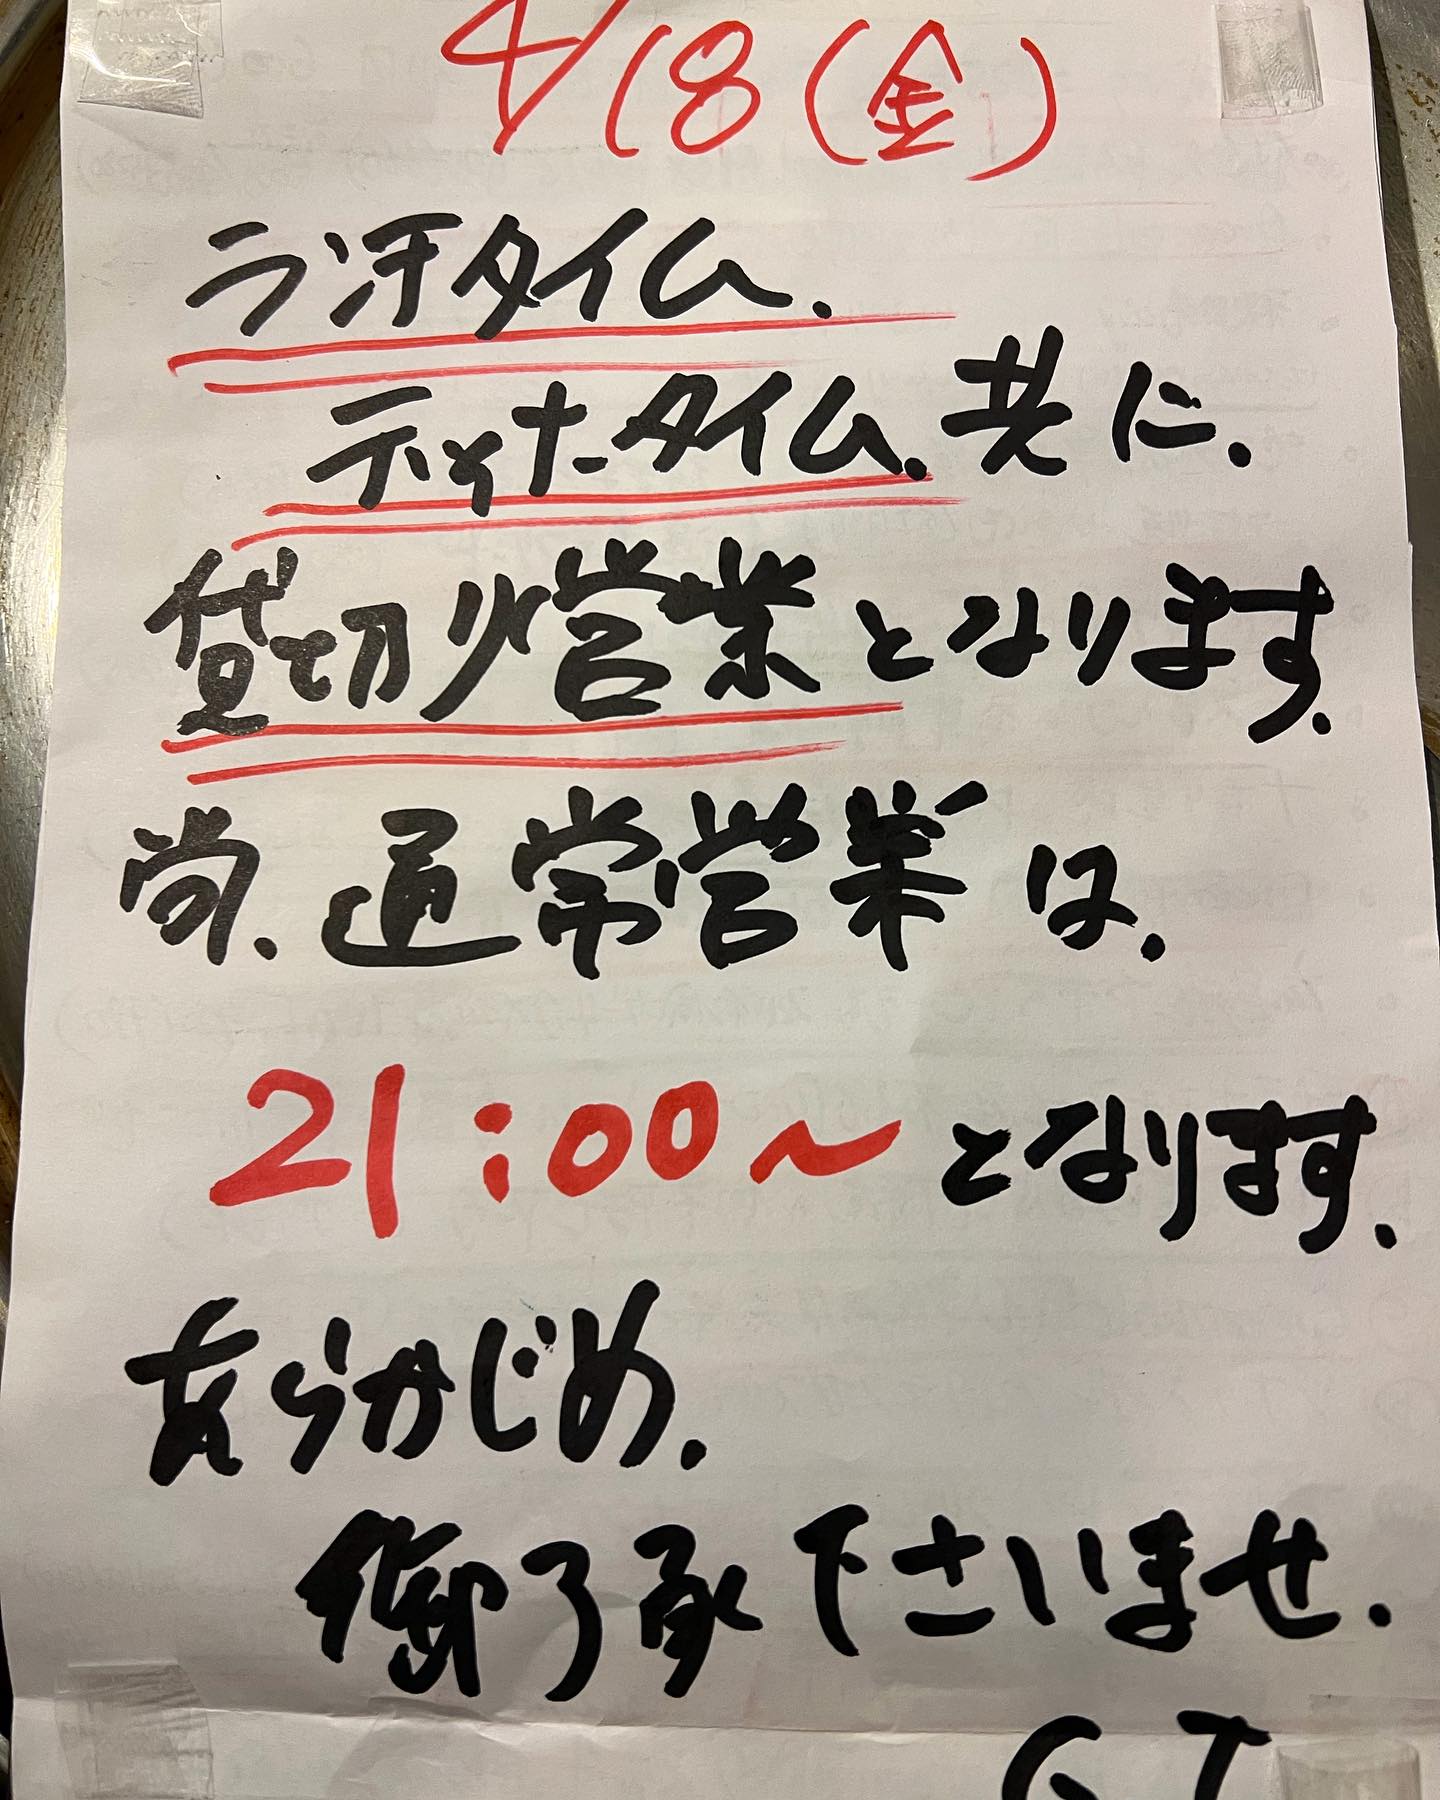 4/18(金)
ランチタイム.
ディナータイム.共に.
貸切り営業となります.
尚.通常営業は.
21:00〜となります.
あらかじめ.
御了承下さいませ.